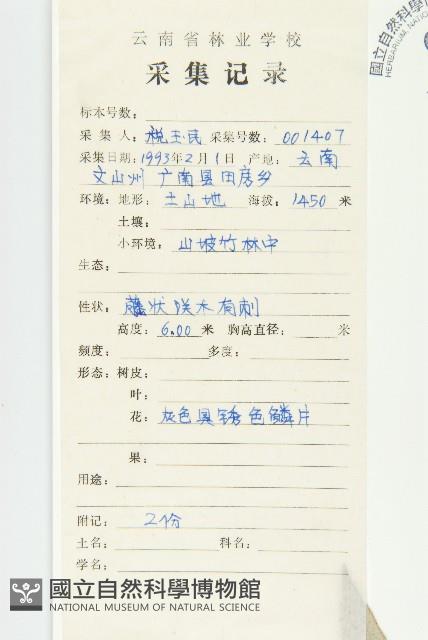 云南省林业学校
采集记录
标本号数:
采集人: 税玉民 采集号数: 001407
采集日期: 1993年2月1日 产地: 云南
文山州 广南县田房乡
环境: 地形: 土山地 海拨: 1450 米
土壤:
小环境: 山坡竹林中
生态:
性状: 藤状灌木有刺
高度: 6.00 米 胸高直径: 米
频度: 多度:
形态: 树皮:
叶:
花: 灰色具锈色鳞片
果:
用途:
附记: 2份
土名: 科名:
学名:
國立自然科學博物館
NATIONAL MUSEUM OF NATURAL SCIENCE
國立自然科學
HERBARIUM, NATION